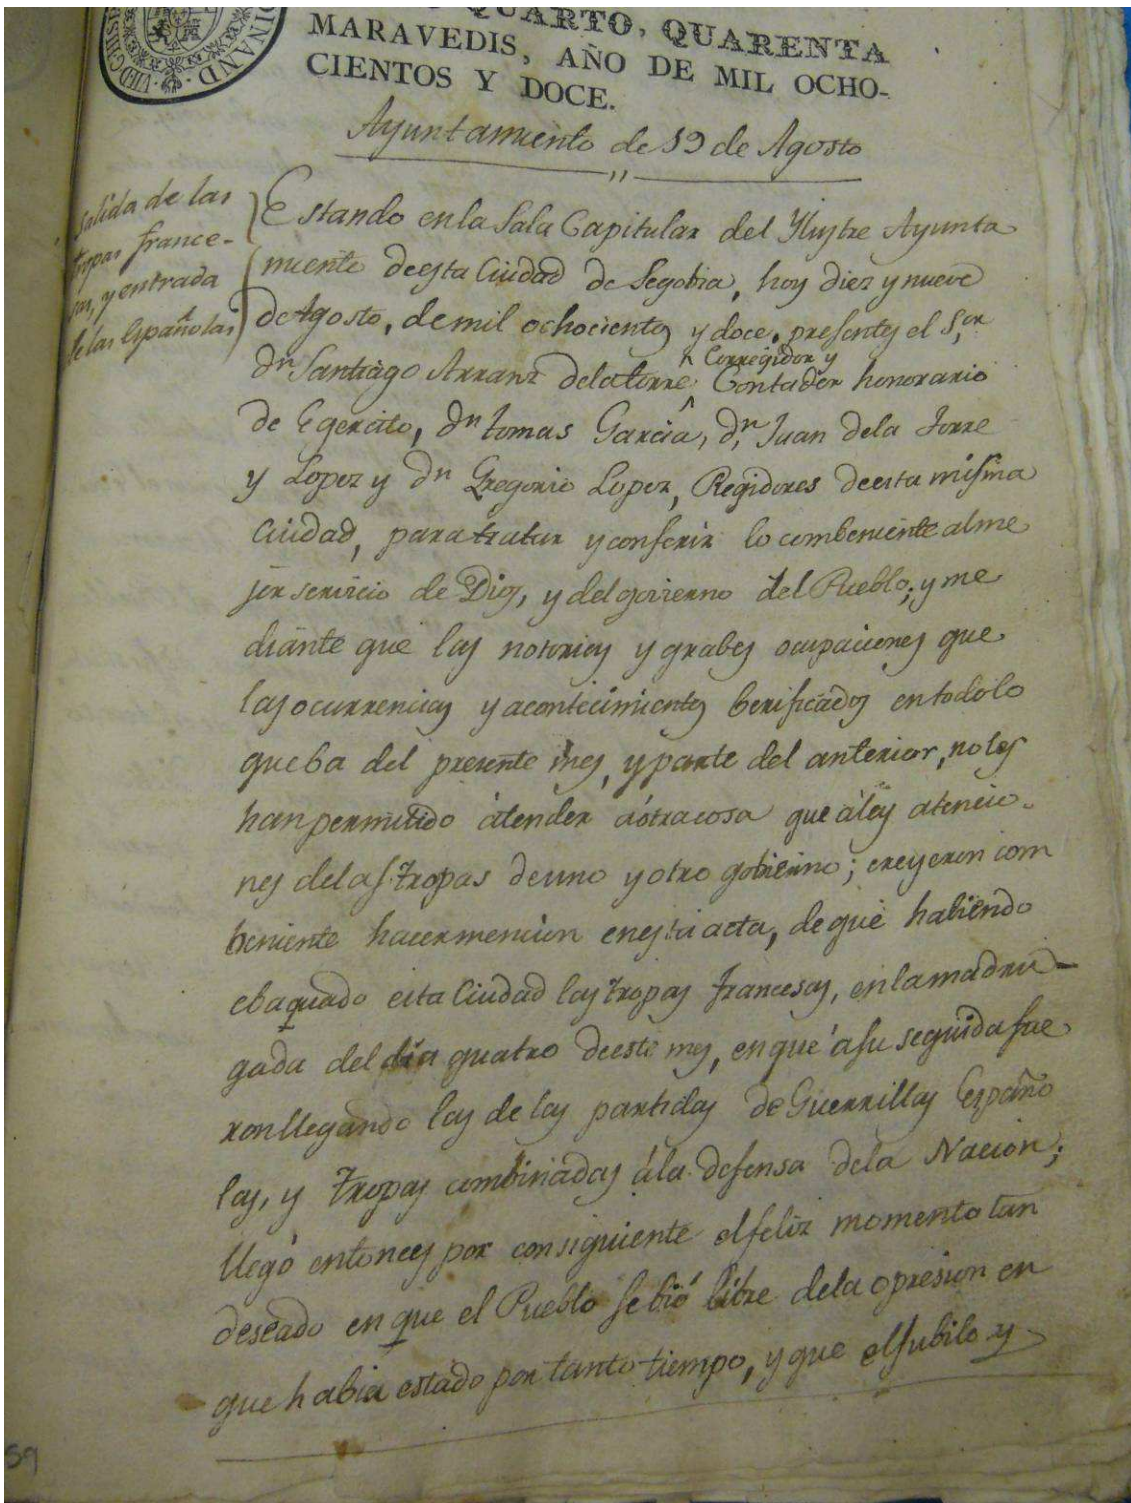 QUARTO, QUARENTA
MARAVEDIS, AÑO DE MIL OCHO-
CIENTOS Y DOCE.
Ayuntamiento de 19 de Agosto
Salida de las
tropas france-
sas, y entrada
de las Españolas
Estando en la Sala Capitular del Ylustre Ayunta
miento de esta Ciudad de Segobia, hoy diez y nueve
de Agosto, de mil ochocientos y doce, presentes el S.or
Corregidor y
dn Santiago Arranz dela torre, Contador honorario
de Egercito, dn tomas Garcia, dn Juan dela Torre
y Lopez y dn Gregorio Lopez, Regidores de esta misma
Ciudad, para tratar y conferir lo combeniente al me
jor servicio de Dios, y del govierno del Pueblo; y me
diante que las notorias y grabes ocupaciones que
las ocurrencias y acontecimientos berificados en todo lo
que ba del presente mes, y parte del anterior, no les
han permitido átender á otra cosa que á las atencio-
nes de las tropas de uno y otro gobierno; creyeron com
beniente hacer mencion en esta acta, de que habiendo
ebaquado esta Ciudad las tropas francesas, en la madru-
gada del dia quatro de este mes, en que á su seguida fue
ron llegando las de las partidas de Guerrillas Españo
las, y tropas combinadas á la defensa dela Nacion;
llegó entonces por consiguiente el feliz momento tan
deseado en que el Pueblo se bió libre dela opresion en
que habia estado por tanto tiempo, y que el jubilo y
59